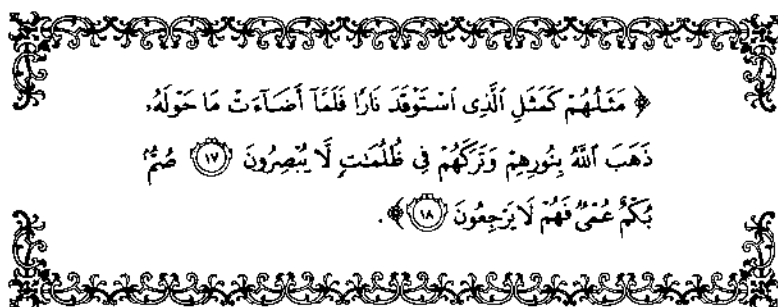 ﴿ مَثَلُهُمْ كَمَثَلِ ٱلَّذِى ٱسْتَوْقَدَ نَارًا فَلَمَّآ أَضَآءَتْ مَا حَوْلَهُۥ
ذَهَبَ ٱللَّهُ بِنُورِهِمْ وَتَرَكَهُمْ فِى ظُلُمَٰتٍ لَّا يُبْصِرُونَ ١٧ صُمٌّۢ
بُكْمٌ عُمْىٌ فَهُمْ لَا يَرْجِعُونَ ١٨ ﴾.